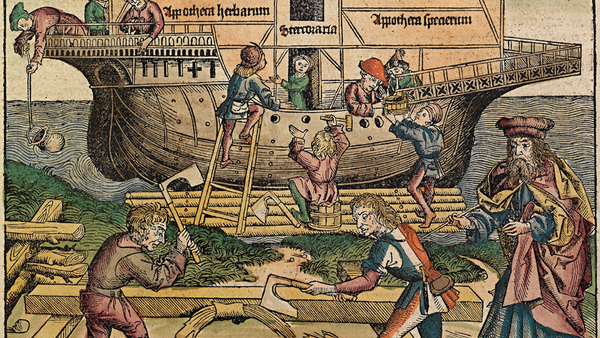 Appotheca herbarum
Stercoraria
Appotheca specierum